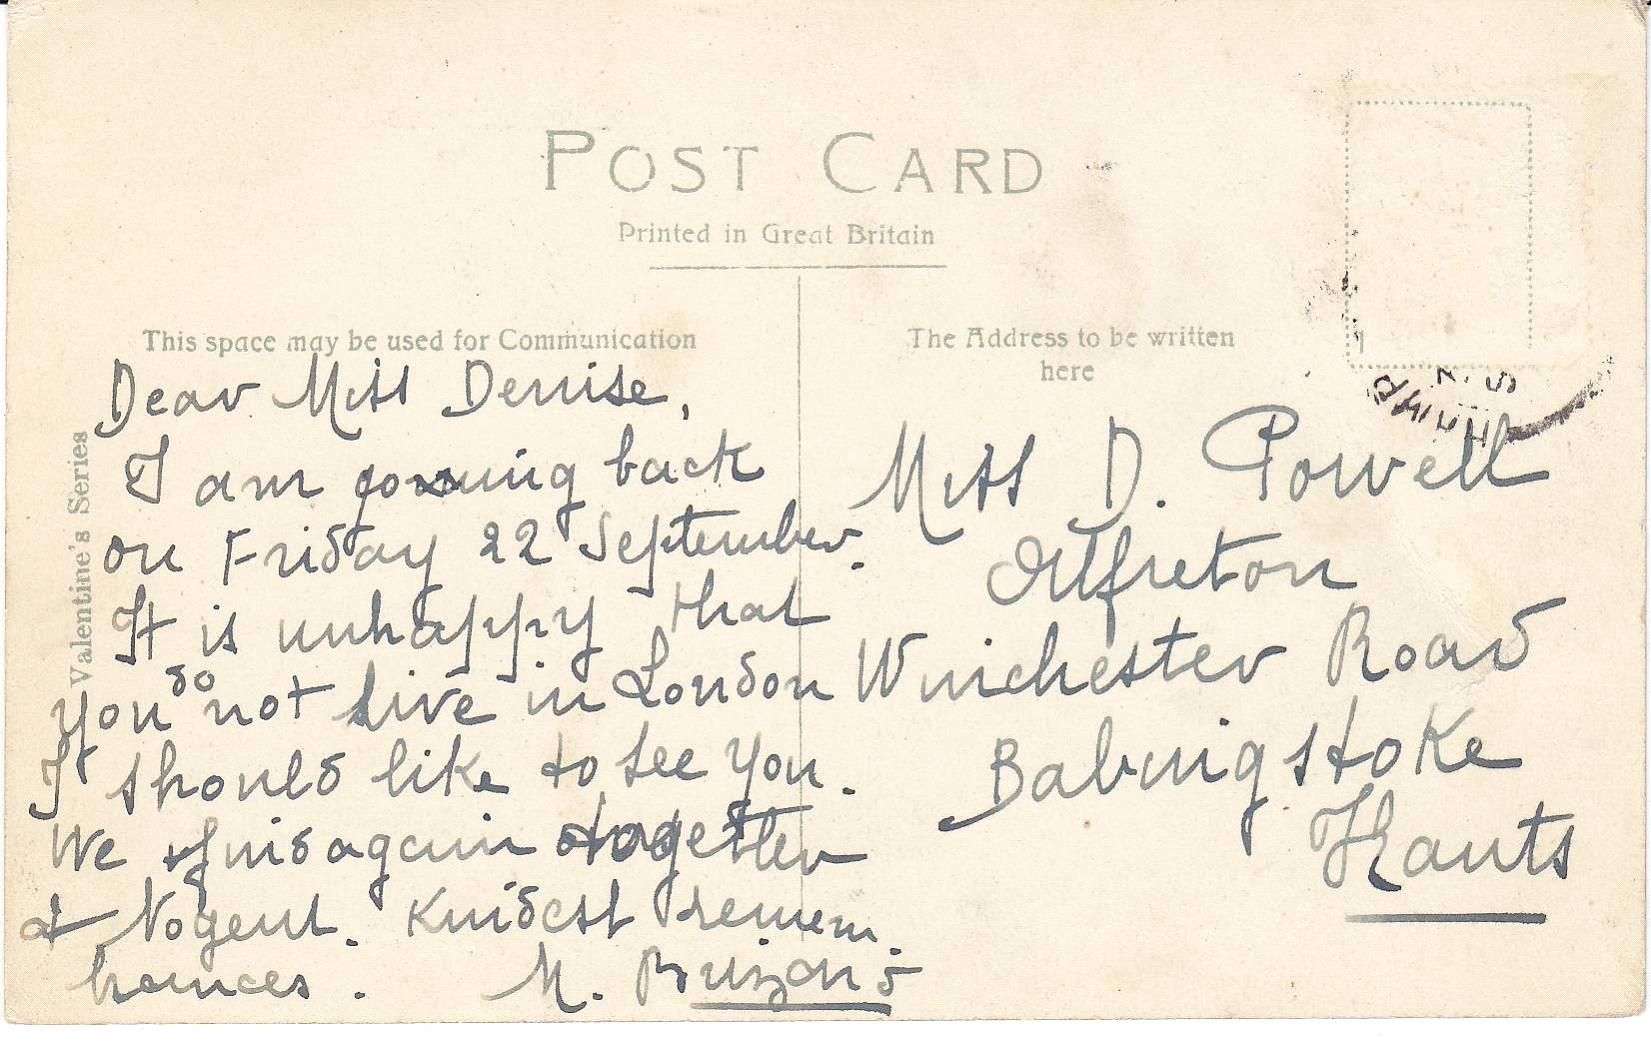 POST CARD
Printed in Great Britain
This space may be used for Communication
The Address to be written
here
Valentine's Series
Dear Miss Denise,
I am going back
on Friday 22 September.
It is unhappy that
you do not live in London
I should like to see you.
We find again together
at Nogent. Kindest remem
brances. M.
Miss D. Powell
Alfreton
Winchester Road
Babingstoke
Hants